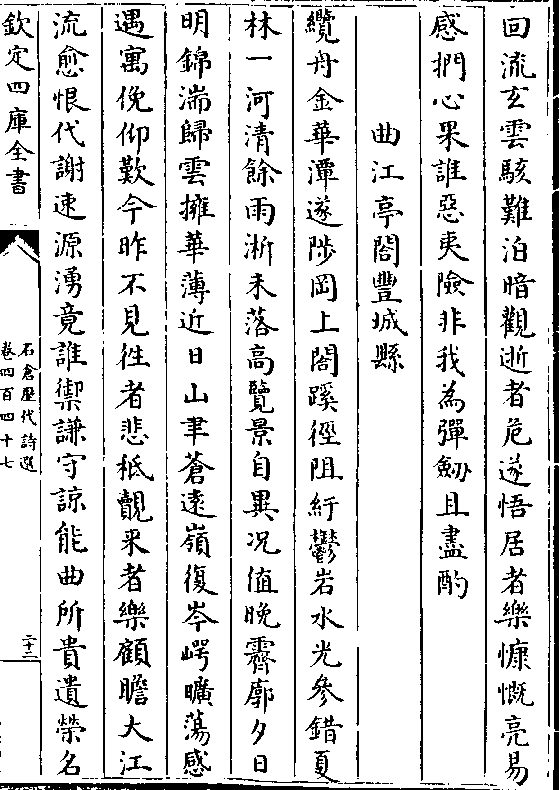 回流玄雲駭難泊暗觀逝者危遂悟居者樂慷慨亮易
感捫心果誰惡夷險非我為彈劒且盡酌
曲江亭閣豐城縣
纜舟金華潭遂陟岡上閣蹊徑阻紆鬱岩水光參錯夏
林一河清餘雨淅未落高覽景自異况值晚霽廓夕日
明錦湍歸雲擁華薄近日山聿蒼遠嶺復岑崿曠蕩感
遇寓俛仰歎今昨不見徃者悲柢覿来者樂顧瞻大江
流愈恨代謝速源湧竟誰禦謙守諒能曲所貴遺榮名
欽定四庫全書
石倉歷代詩選
卷四百四十七
二十二